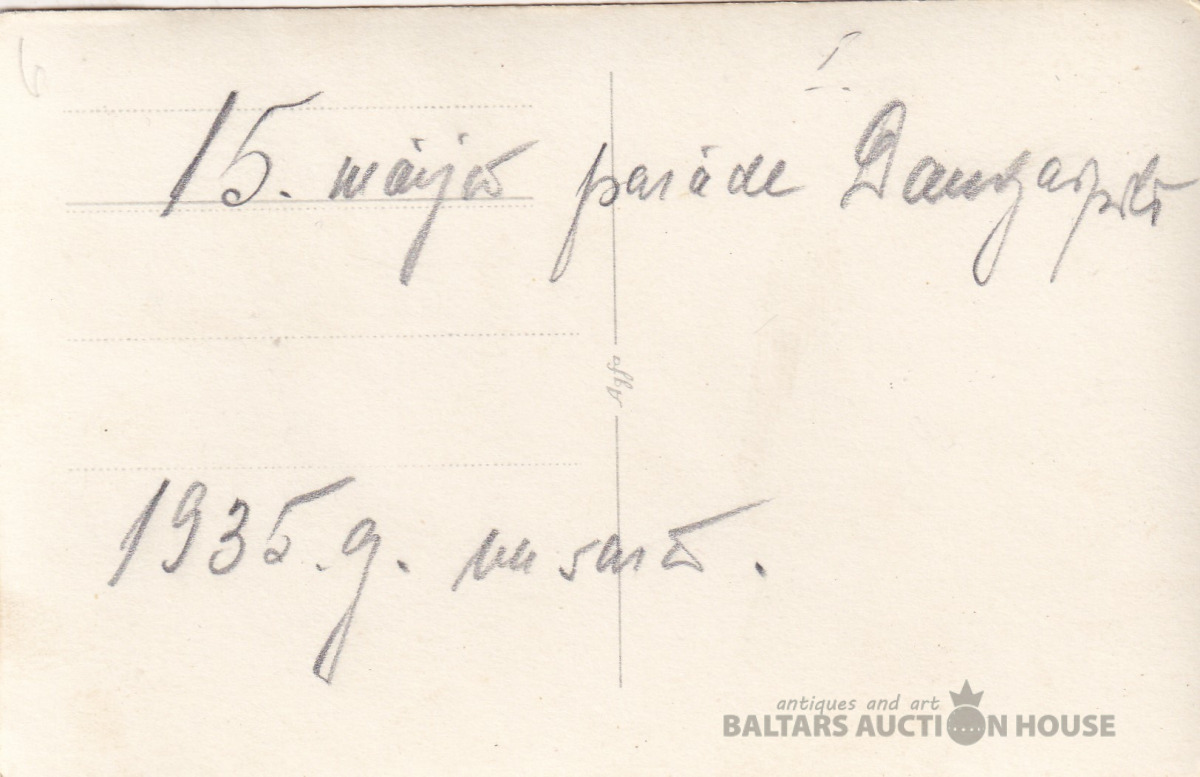 15. maijā parāde Daugavpilī
1935. g. vasarā.
antiques and art
BALTARS AUCTION HOUSE